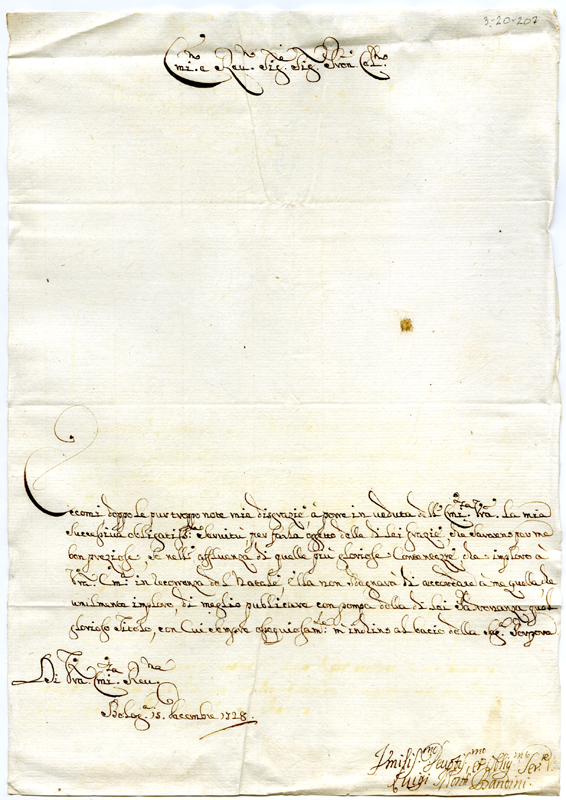 3-20-207
Emi.no e Reu.mo Sig.re Sig.re Pron. Coll.mo
Eccomi doppo le pur troppo note mie disgrazie à porre in veduta dell' Em.za Vra. la mia
successiva obligatiss.ma Servitù per farla oggetto della di lei grazie, che saranno per me
ben preziose, se nell' affluenza di quelle più gloriose Contentezze, che imploro à
V.ra Em.za in decorrenza del Natale, Ella non sdegnerà di accordare à me quella che
umilmente imploro, di meglio publicare con pompa della di lei Padronanza quel
glorioso Titolo, con cui sempre ossequiosam.te m' inchino al bacio della Sag.ra Porpora
Di Vra. Em.za Reu.ma
Bolog.a 15. decembre 1728.
Umiliss.mo Deuotiss.mo Obblig.mo Ser.re
Luigi Bantini.